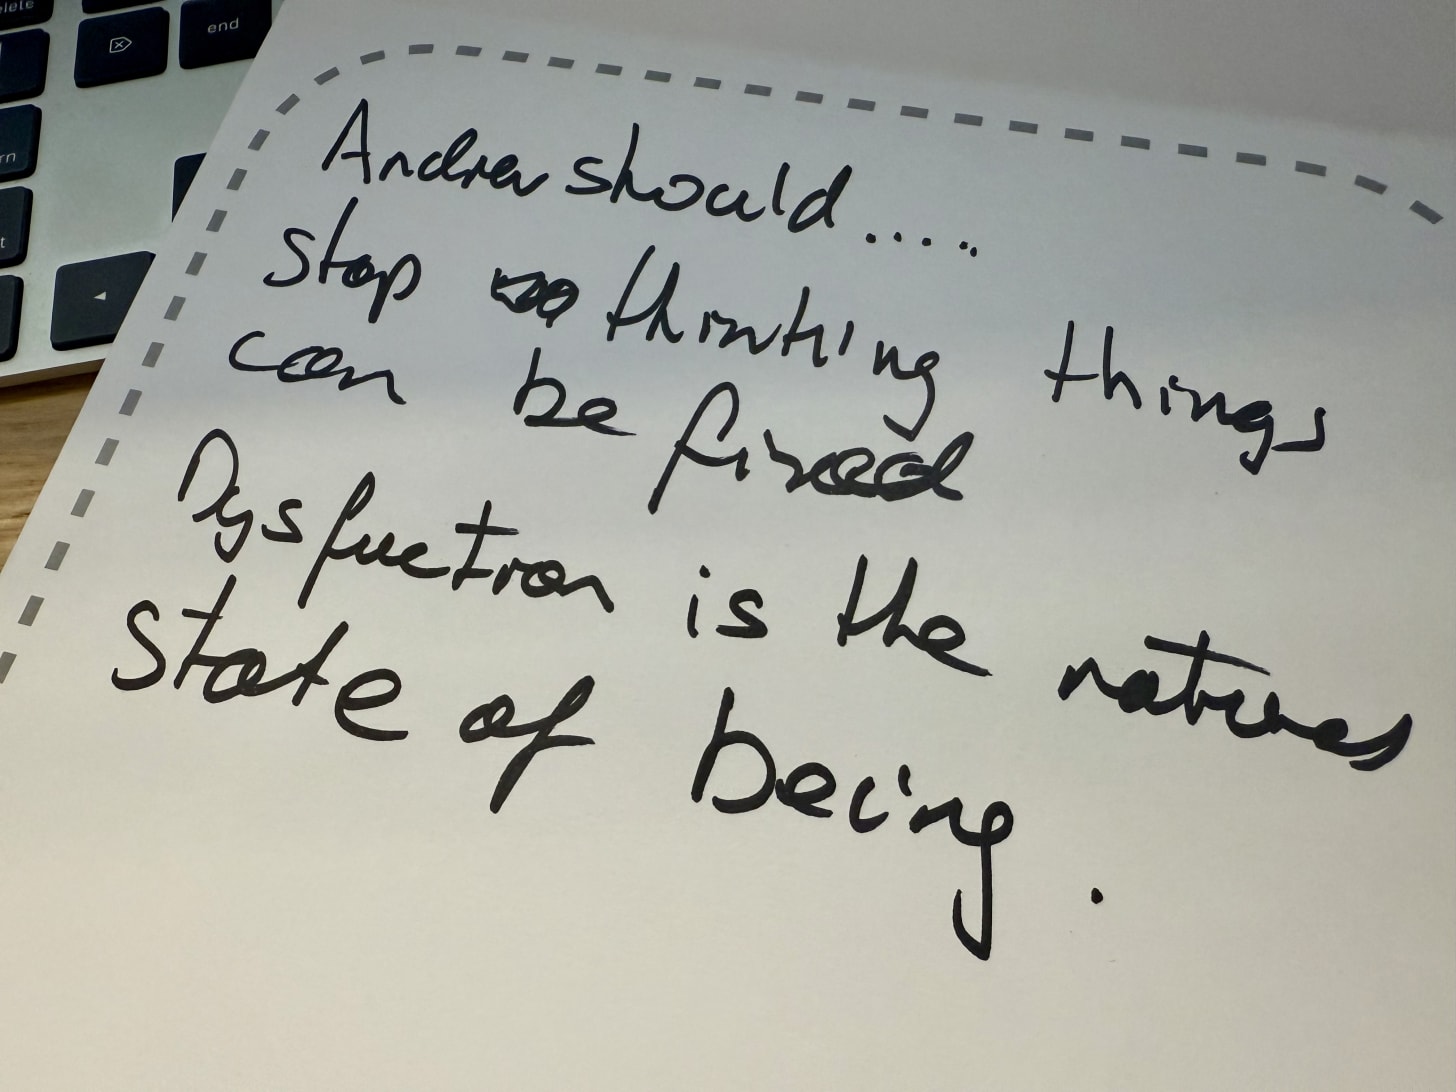 elete
end
rn
t
Andrew should.....
stop thinking things
can be fixed
Dysfuction is the natural
state of being.